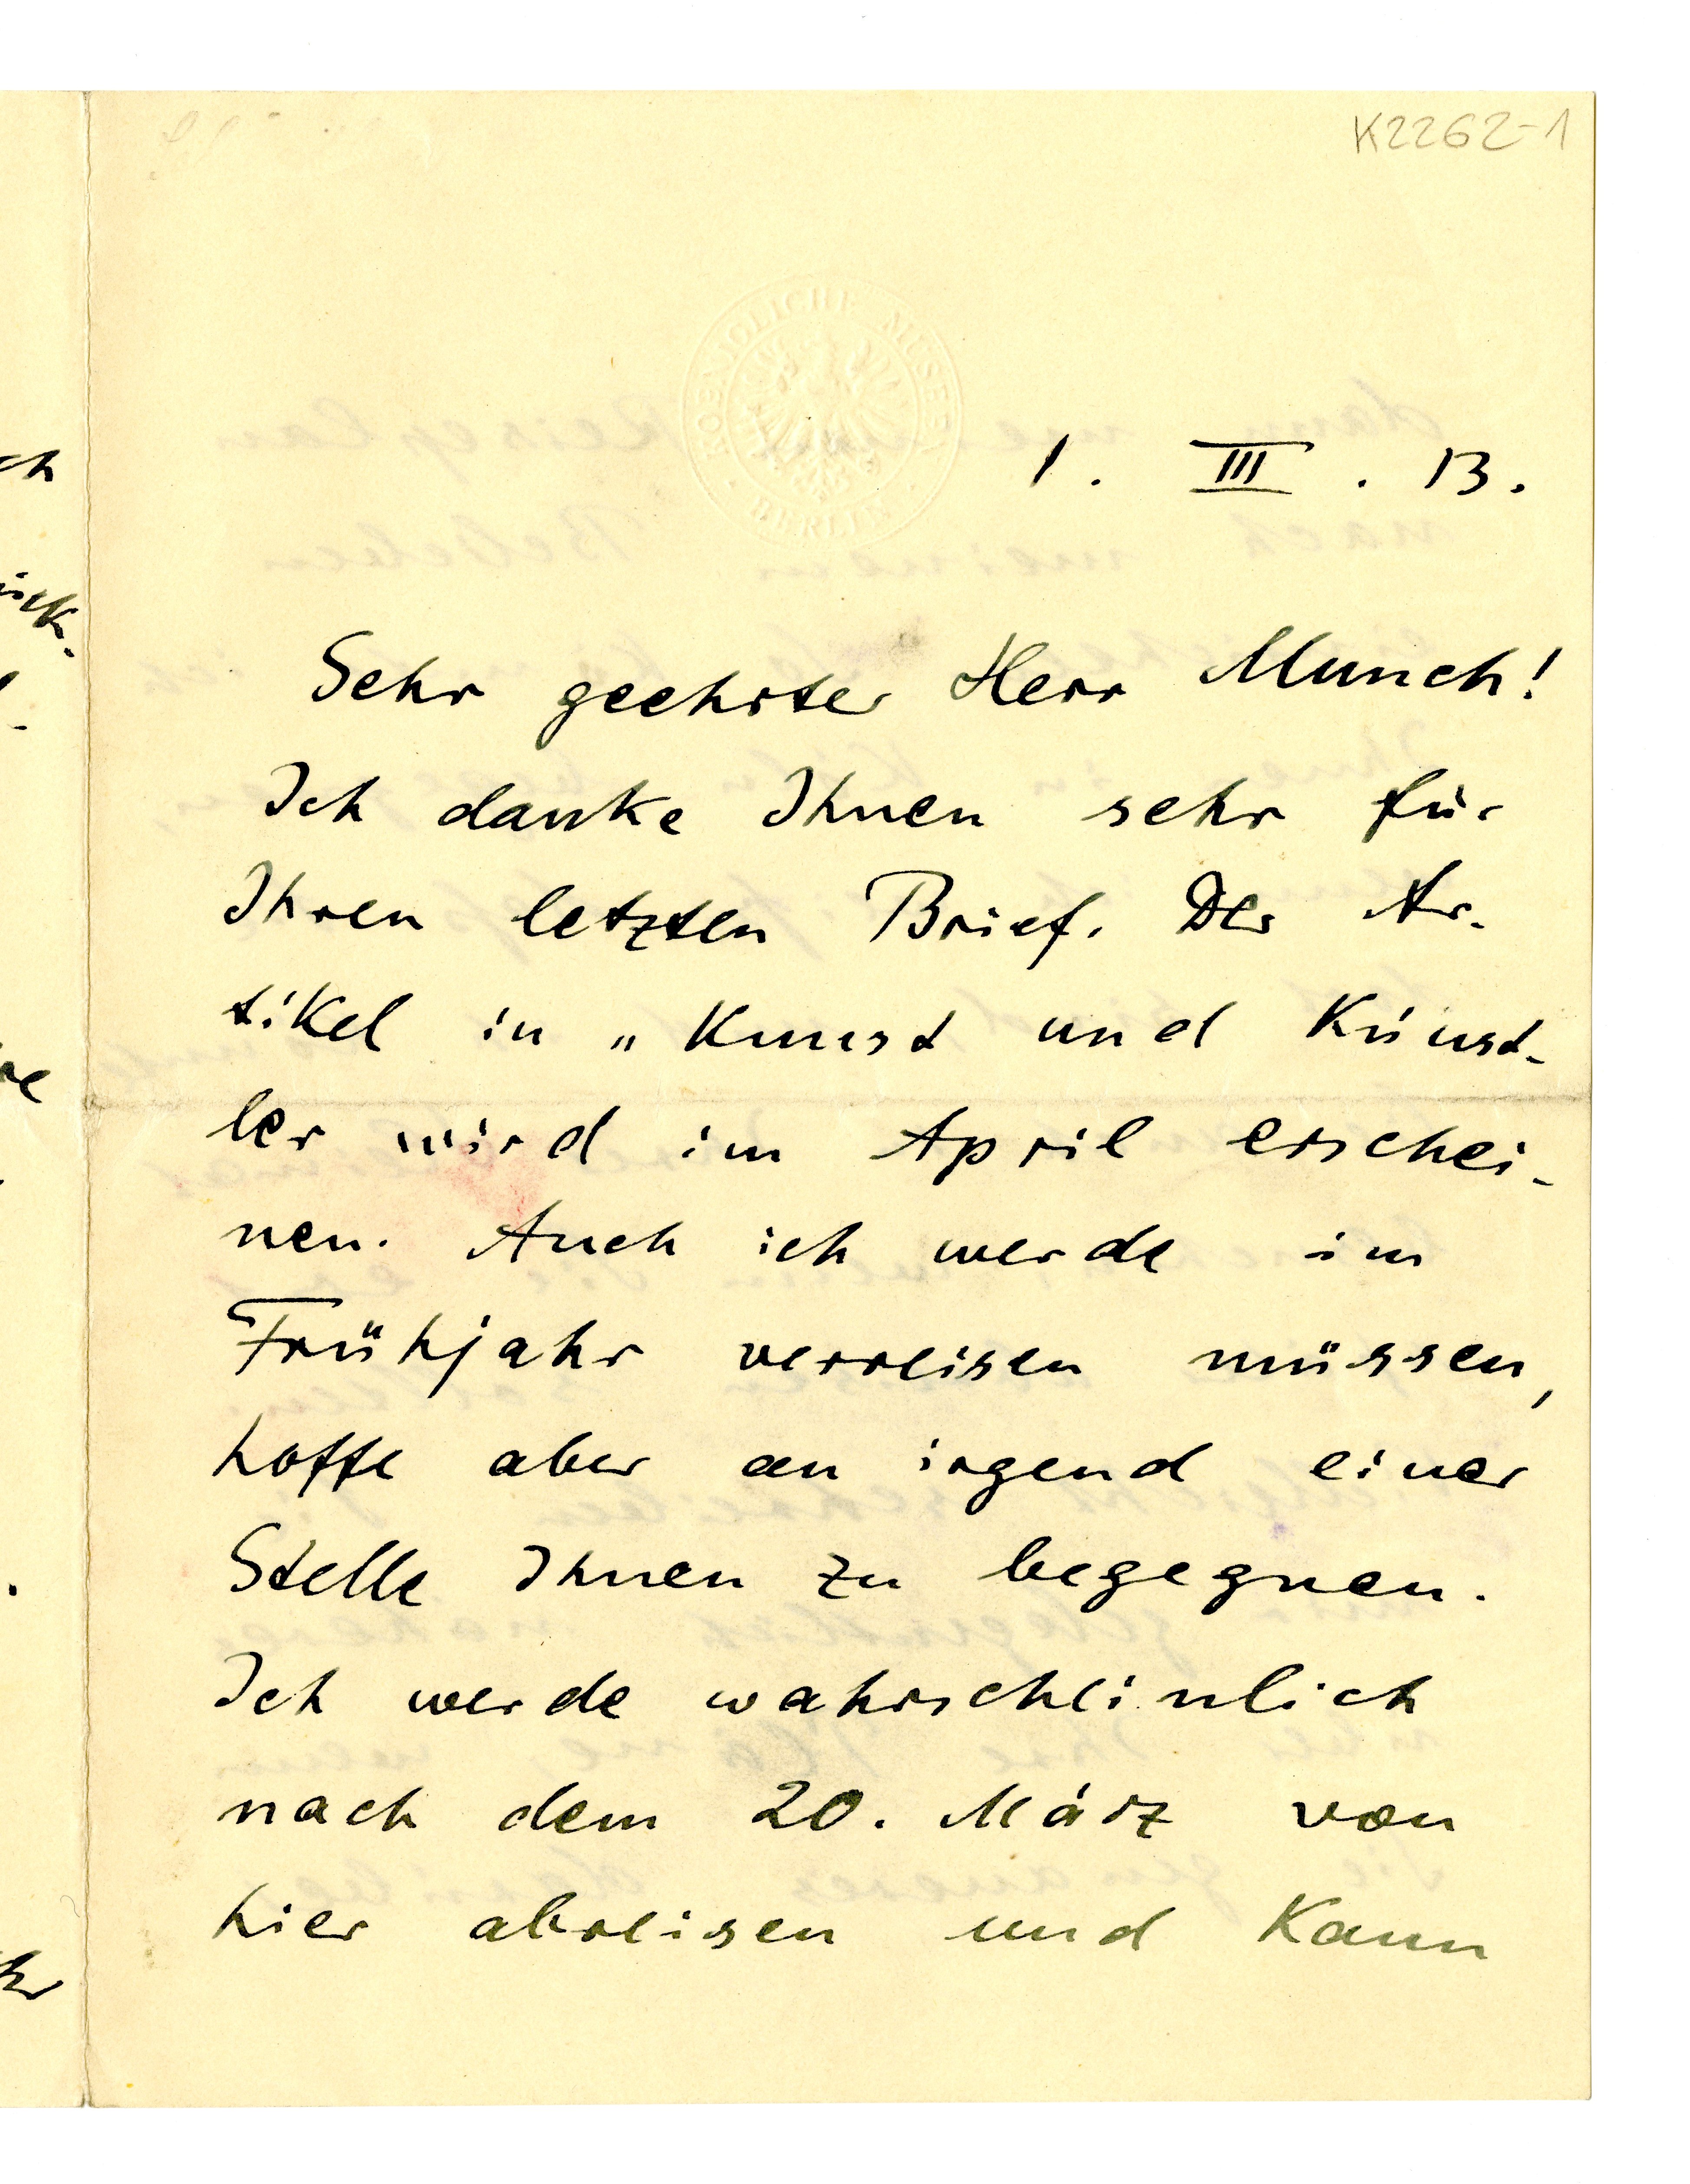 K2262-1
KOENIGLICHE MUSEEN
BERLIN
1. III. 13.
Sehr geehrter Herr Munch!
Ich danke Ihnen sehr für
Ihren letzten Brief. Der Ar-
tikel in „Kunst und Künst-
ler wird im April erschei-
nen. Auch ich werde im
Frühjahr verreisen müssen,
hoffe aber an irgend einer
Stelle Ihnen zu begegnen.
Ich werde wahrscheinlich
nach dem 20. März von
hier abreisen und kann